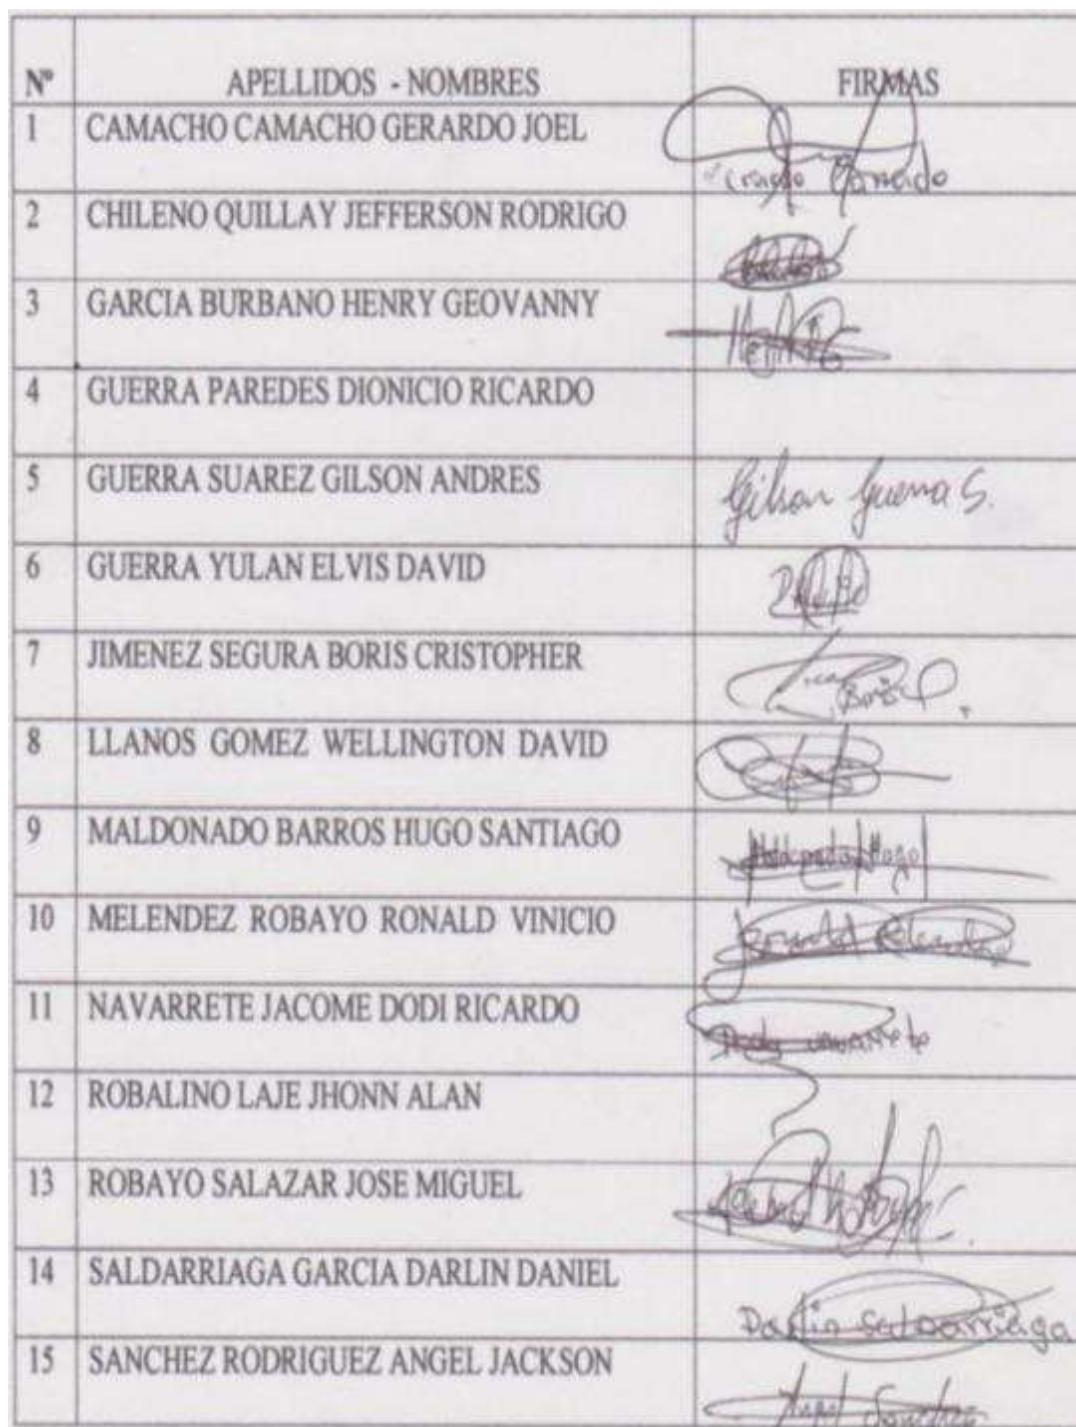 Nº APELLIDOS - NOMBRES FIRMAS
1 CAMACHO CAMACHO GERARDO JOEL
2 CHILENO QUILLAY JEFFERSON RODRIGO
3 GARCIA BURBANO HENRY GEOVANNY
4 GUERRA PAREDES DIONICIO RICARDO
5 GUERRA SUAREZ GILSON ANDRES Gilson Guerra S.
6 GUERRA YULAN ELVIS DAVID
7 JIMENEZ SEGURA BORIS CRISTOPHER Boris
8 LLANOS GOMEZ WELLINGTON DAVID
9 MALDONADO BARROS HUGO SANTIAGO Maldonado Hugo
10 MELENDEZ ROBAYO RONALD VINICIO
11 NAVARRETE JACOME DODI RICARDO
12 ROBALINO LAJE JHONN ALAN
13 ROBAYO SALAZAR JOSE MIGUEL
14 SALDARRIAGA GARCIA DARLIN DANIEL Darlin Saldarriaga
15 SANCHEZ RODRIGUEZ ANGEL JACKSON Angel Sanchez